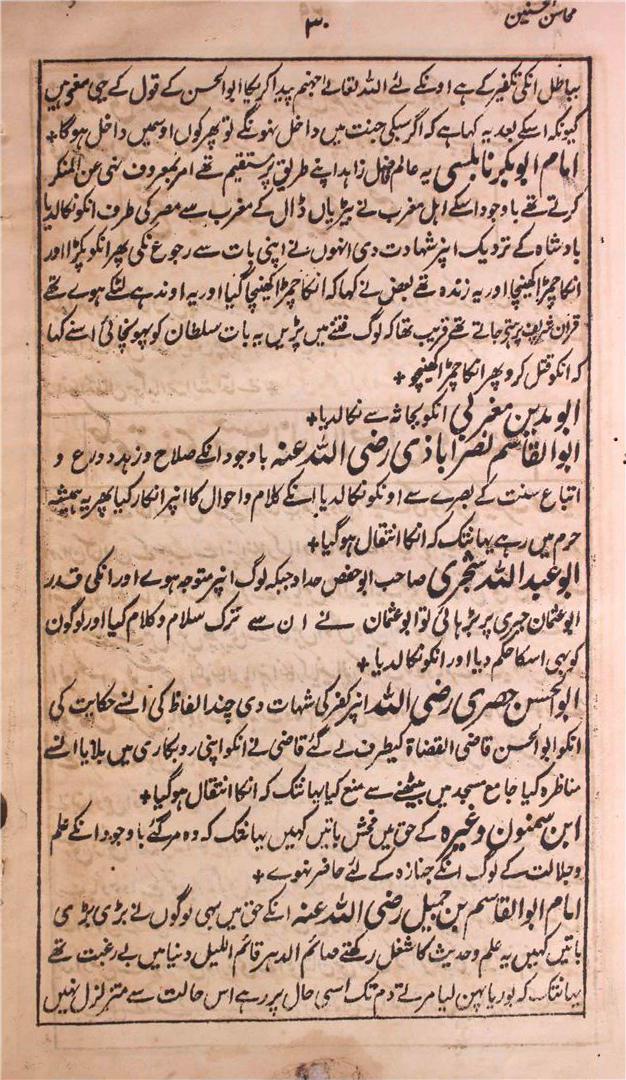 محاسن المحسنین
۳۰
بباطل انکی تکفیر کے ہے اونکے لئے اللہ تعالےٰ جہنم پیدا کریگا ابو الحسن کے قول کے یہی معنی ہیں
کیونکہ اسکے بعد یہ کہا ہے کہ اگر سبکی جنت میں داخل نہونگے تو پھر کون اوسمیں داخل ہوگا+
امام ابو بکر نابلسی یہ عالم فاضل زاہد اپنے طریق پر مستقیم تھے امر بمعروف نہی عن المنکر
کرتے تھے باوجود اسکے اہل مغرب نے بیڑیاں ڈال کے مغرب سے مصر کی طرف انکو نکالدیا
بادشاہ کے نزدیک اپنر شہادت دی انہوں نے اپنی بات سے رجوع نکی پھر انکو پکڑا اور
انکا چمڑا کھینچا اور یہ زندہ تھے بعض نے کہا کہ انکا چمڑا کھینچا گیا اور یہ اوندہے لٹکے ہوے تھے
قرآن شریف پڑہتے جاتے تھے قریب تھا کہ لوگ فتنے میں پڑیں یہ بات سلطان کو پہونچائی اسنے کہا
کہ انکو قتل کرو پھر انکا چمڑا کھینچو+
ابو مدین مغربی انکو بجایہ سے نکالدیا+
ابو القاسم نصراباذی رضی اللہ عنہ باوجود انکے صلاح و زہد و ورع و
اتباع سنت کے بصرے سے اونکو نکالدیا انکے کلام و احوال کا انپر انکار کیا پھر یہ ہمیشہ
حرم میں رہے یہانتک کہ انکا انتقال ہوگیا+
ابو عبد اللہ شجری صاحب ابو حفص حداد جبکہ لوگ انپر متوجہ ہوے اور انکی قدر
ابو عثمان حیری پر بڑہائی تو ابو عثمان نے ان سے ترک سلام و کلام کیا اور لوگوں
کو بھی اسکا حکم دیا اور انکو نکالدیا+
ابو الحسن حصری رضی اللہ انپر کفر کی شہات دی چند الفاظ کی انسے حکایت کی
انکو ابو الحسن قاضی القضاۃ کیطرف لے گئے قاضی نے انکو اپنی روبکاری میں بلایا انسے
مناظرہ کیا جامع مسجد میں بیٹھنے سے منع کیا یہانتک کہ انکا انتقال ہوگیا+
ابن سمنون وغیرہ کے حق میں فحش باتیں کہیں یہانتک کہ وہ مرگئے باوجود انکے علم
و جلالت کے لوگ انکے جنازہ کے لئے حاضر نہوے+
امام ابو القاسم بن جمیل رضی اللہ عنہ انکے حق میں بھی لوگوں نے بڑی بڑی
باتیں کہیں یہ علم و حدیث کا شغل رکھتے صائم الدہر قائم اللیل دنیا میں بے رغبت تھے
یہانتک کہ بوریا پہن لیا مرتے دم تک اسی حال پر رہے اس حالت سے متزلزل نہیں